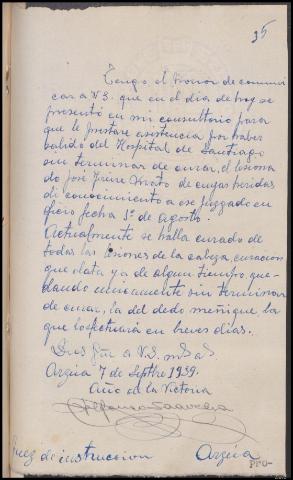 35
Tengo el honor de comuni
car a V.S. que en el dia de hoy se
presentó en mi consultorio para
que le prestare asistencia por haber
salido del Hospital de Santiago
sin terminar de curar, el lesiona
do José Freire de cuyas heridas
di conocimiento a ese juzgado en
oficio fecha 1º de Agosto.
Actualmente se halla curado de
todas las lesiones de la cabeza, curacion
que data ya de algun tiempo, que-
dando unicamente sin terminar
de curar, la del dedo meñique la
que lo efectuará en breves dias.
Dios gue a V.S. ms as
Arzúa 7 de Septbre 1939.
Año de la Victoria
Alfonso Saavedra
Juez de instruccion Arzúa
PPU-